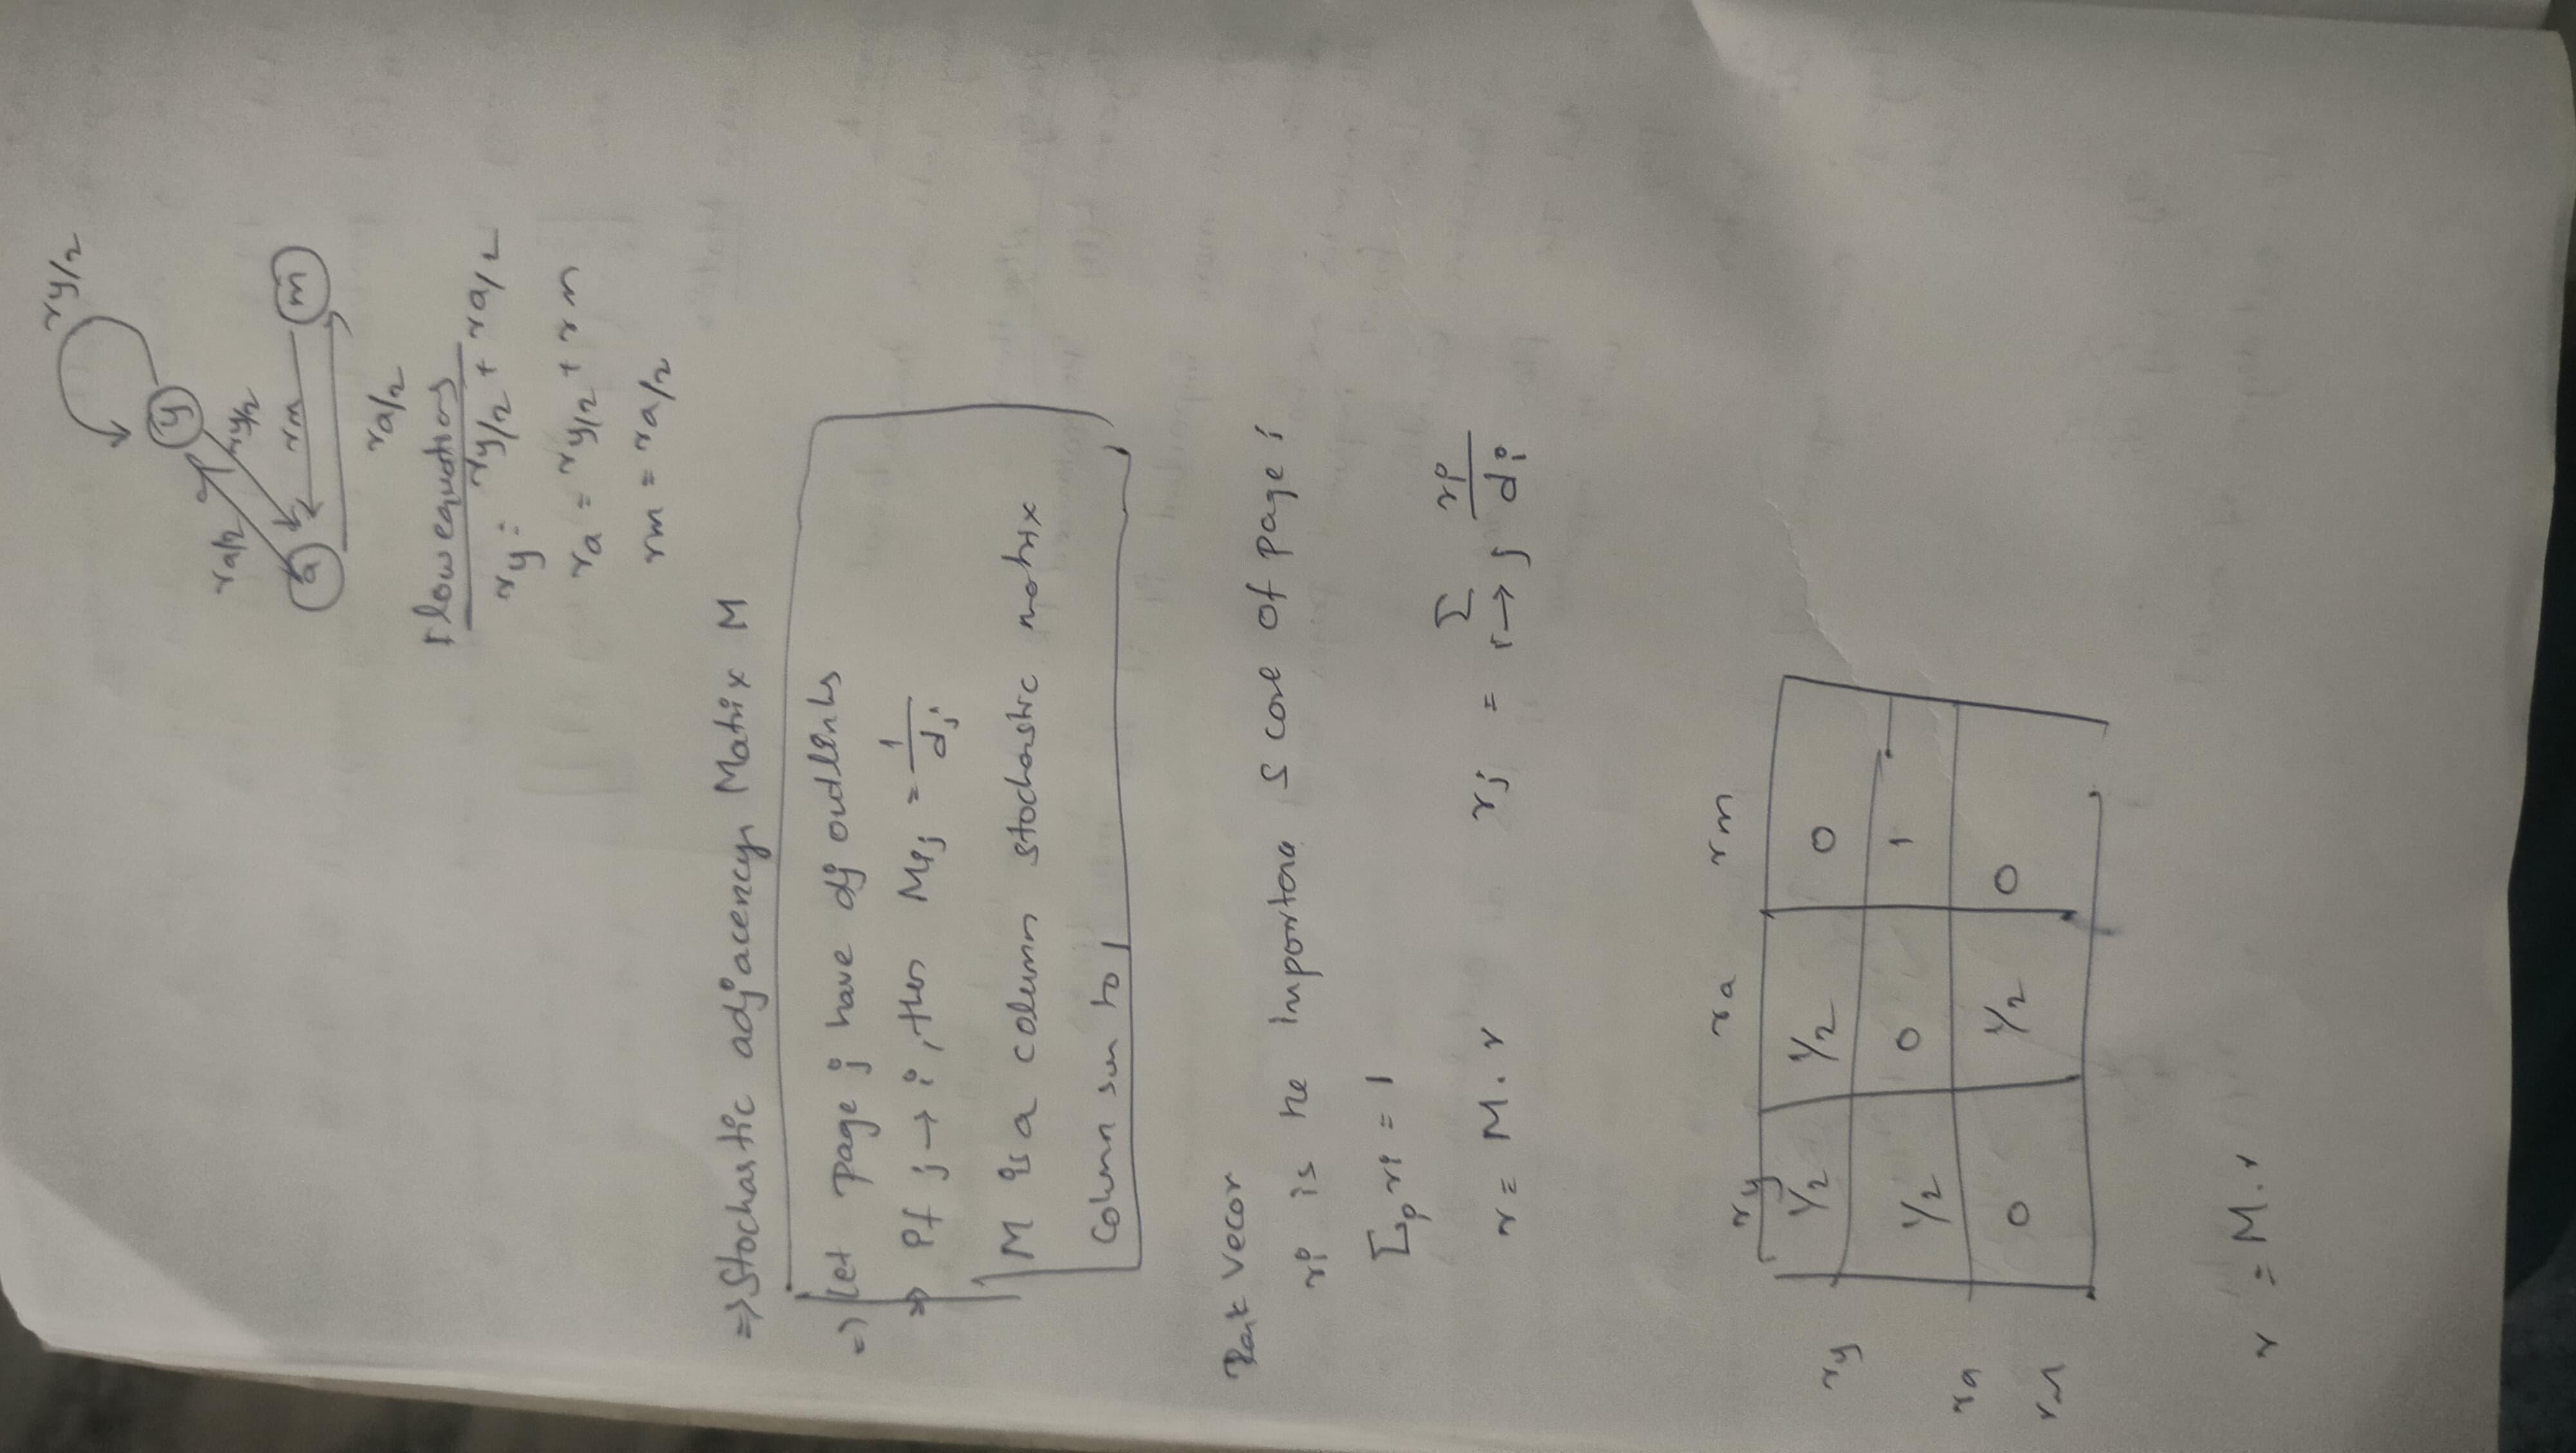 ry/2
y
ra/2
ry/2
rm
a
m
ra/2
flow equations
ry = ry/2 + ra/2
ra = ry/2 + rm
rm = ra/2
=> Stochastic adjacency Matrix M
=> Let page j have dj outlinks
=> If j → i, then Mij = 1/dj
M is a column stochastic matrix
Column sum to 1
Rank vecor
ri is the importance score of page i
Σi ri = 1
r = M.r rj = Σ i→j ri/di
ry ra rm
ry 1/2 1/2 0
ra 1/2 0 1
rm 0 1/2 0
r = M.r